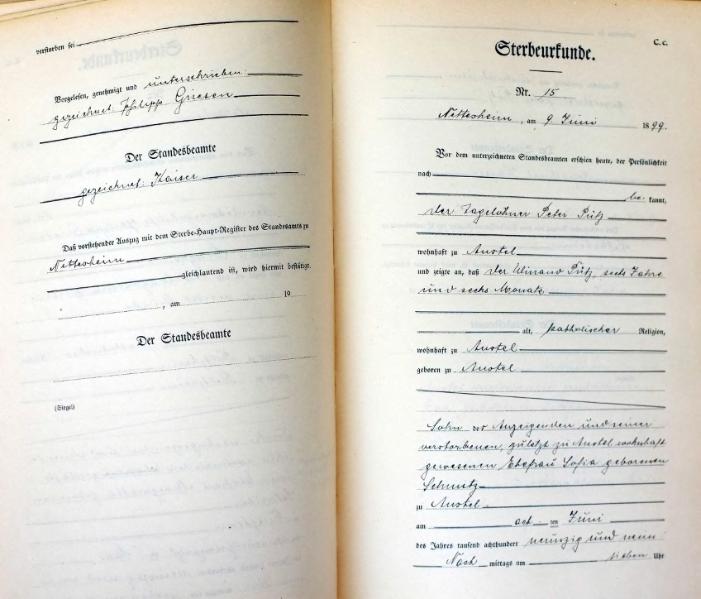 verstorben sei
Vorgelesen, genehmigt und unterschrieben
gezeichnet: Philipp Griesen
Der Standesbeamte
gezeichnet: Kaiser
Daß vorstehender Auszug mit dem Sterbe-Haupt-Register des Standesamts zu
Nettesheim
gleichlautend ist, wird hiermit bestätigt.
, am 19
Der Standesbeamte
(Siegel)
C.c.
Sterbeurkunde.
Nr. 15
Nettesheim, am 9 Juni 1899.
Vor dem unterzeichneten Standesbeamten erschien heute, der Persönlichkeit
nach
be kannt,
der Tagelöhner Peter Pütz
wohnhaft zu Anstel
und zeigte an, daß der Winand Pütz, sechs Jahre
und sechs Monate
alt, katholischer Religion,
wohnhaft zu Anstel
geboren zu Anstel
Sohn des Anzeigenden und seiner
verstorbenen, zuletzt zu Anstel wohnhaft
gewesenen Ehefrau Sofia geborenen
Schmitz
zu Anstel
am acht ten Juni
des Jahres tausend achthundert neunzig und neun
Nach mittags um sieben Uhr